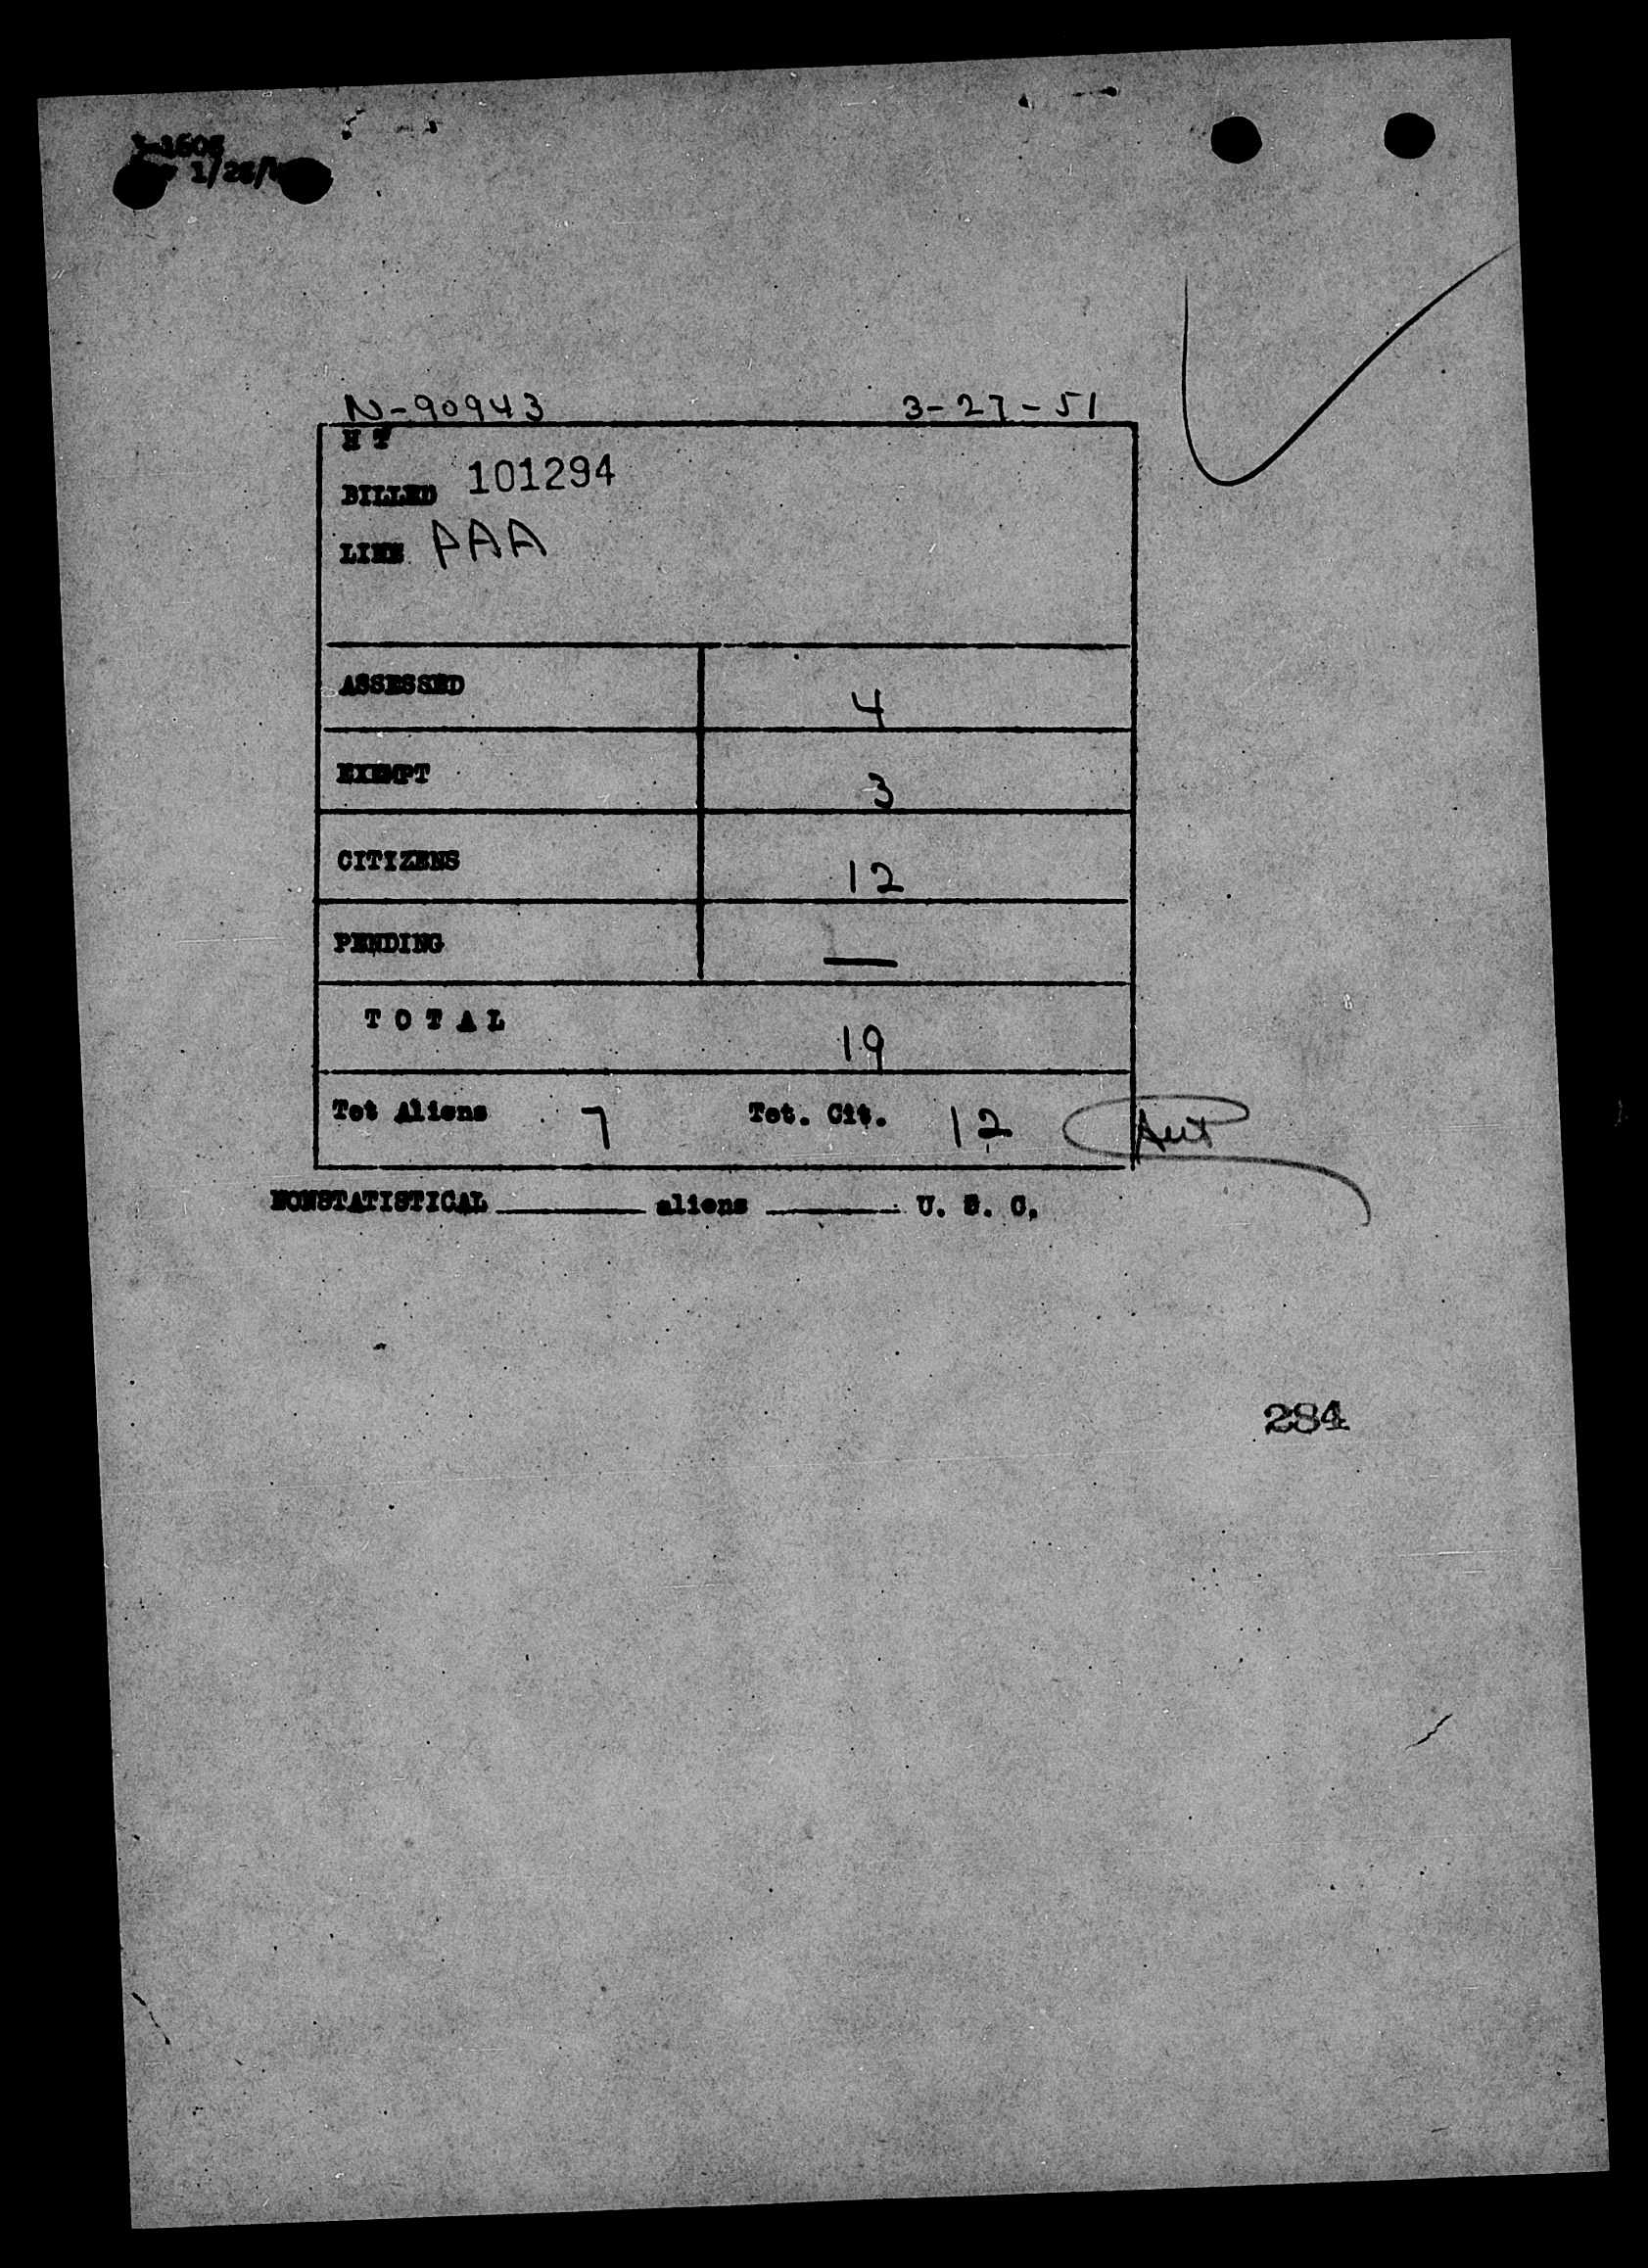 N-90943 3-27-51
H T
BILLED 101294
LINE PAA
ASSESSED 4
EXEMPT 3
CITIZENS 12
PENDING —
TOTAL 19
Tot Aliens 7 Tot. Cit. 12
NONSTATISTICAL ______ aliens ______ U. S. C.
284